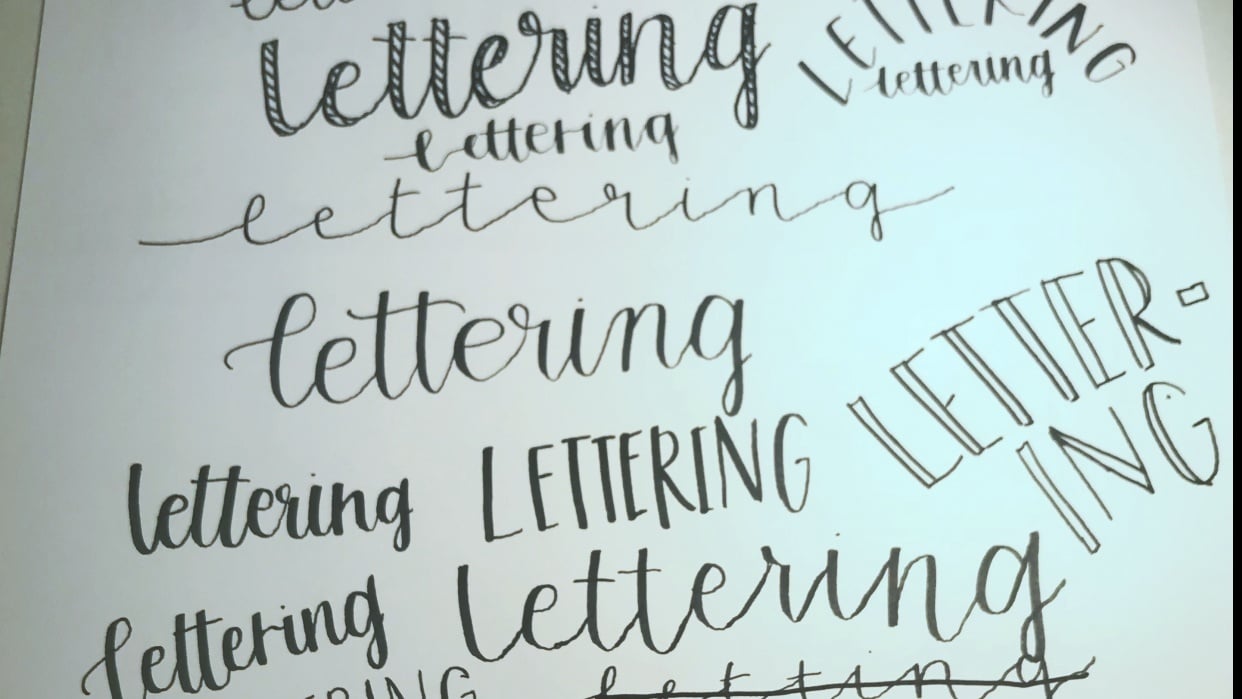 lettering
LETTERING
lettering
lettering
lettering
lettering
LETTER-
ING
lettering LETTERING
lettering lettering